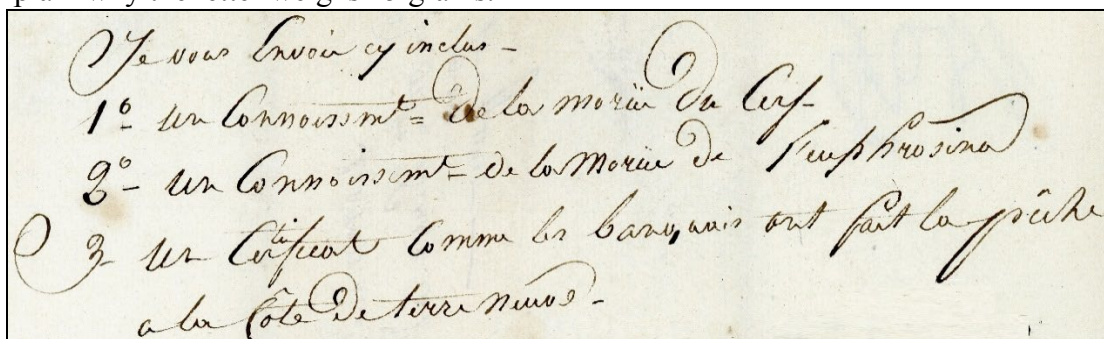 Je vous Envoie cy inclus -
1º un Connoissmt= de la moruë du Cerf-
2º- un Connoissemt= de la Moruë de l'euphrosine
3- un Certificat Comme les banquais ont fait la pêche
a la Côte de terre neuve-